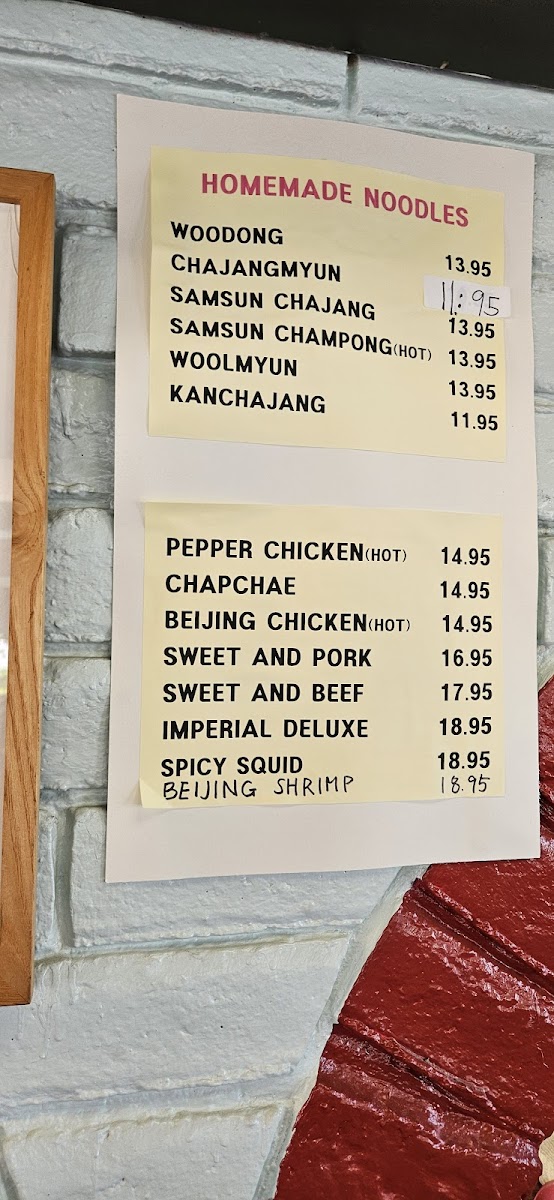 HOMEMADE NOODLES
WOODONG 13.95
CHAJANGMYUN 11:95
SAMSUN CHAJANG 13.95
SAMSUN CHAMPONG(HOT) 13.95
WOOLMYUN 13.95
KANCHAJANG 11.95
PEPPER CHICKEN(HOT) 14.95
CHAPCHAE 14.95
BEIJING CHICKEN(HOT) 14.95
SWEET AND PORK 16.95
SWEET AND BEEF 17.95
IMPERIAL DELUXE 18.95
SPICY SQUID 18.95
BEIJING SHRIMP 18.95